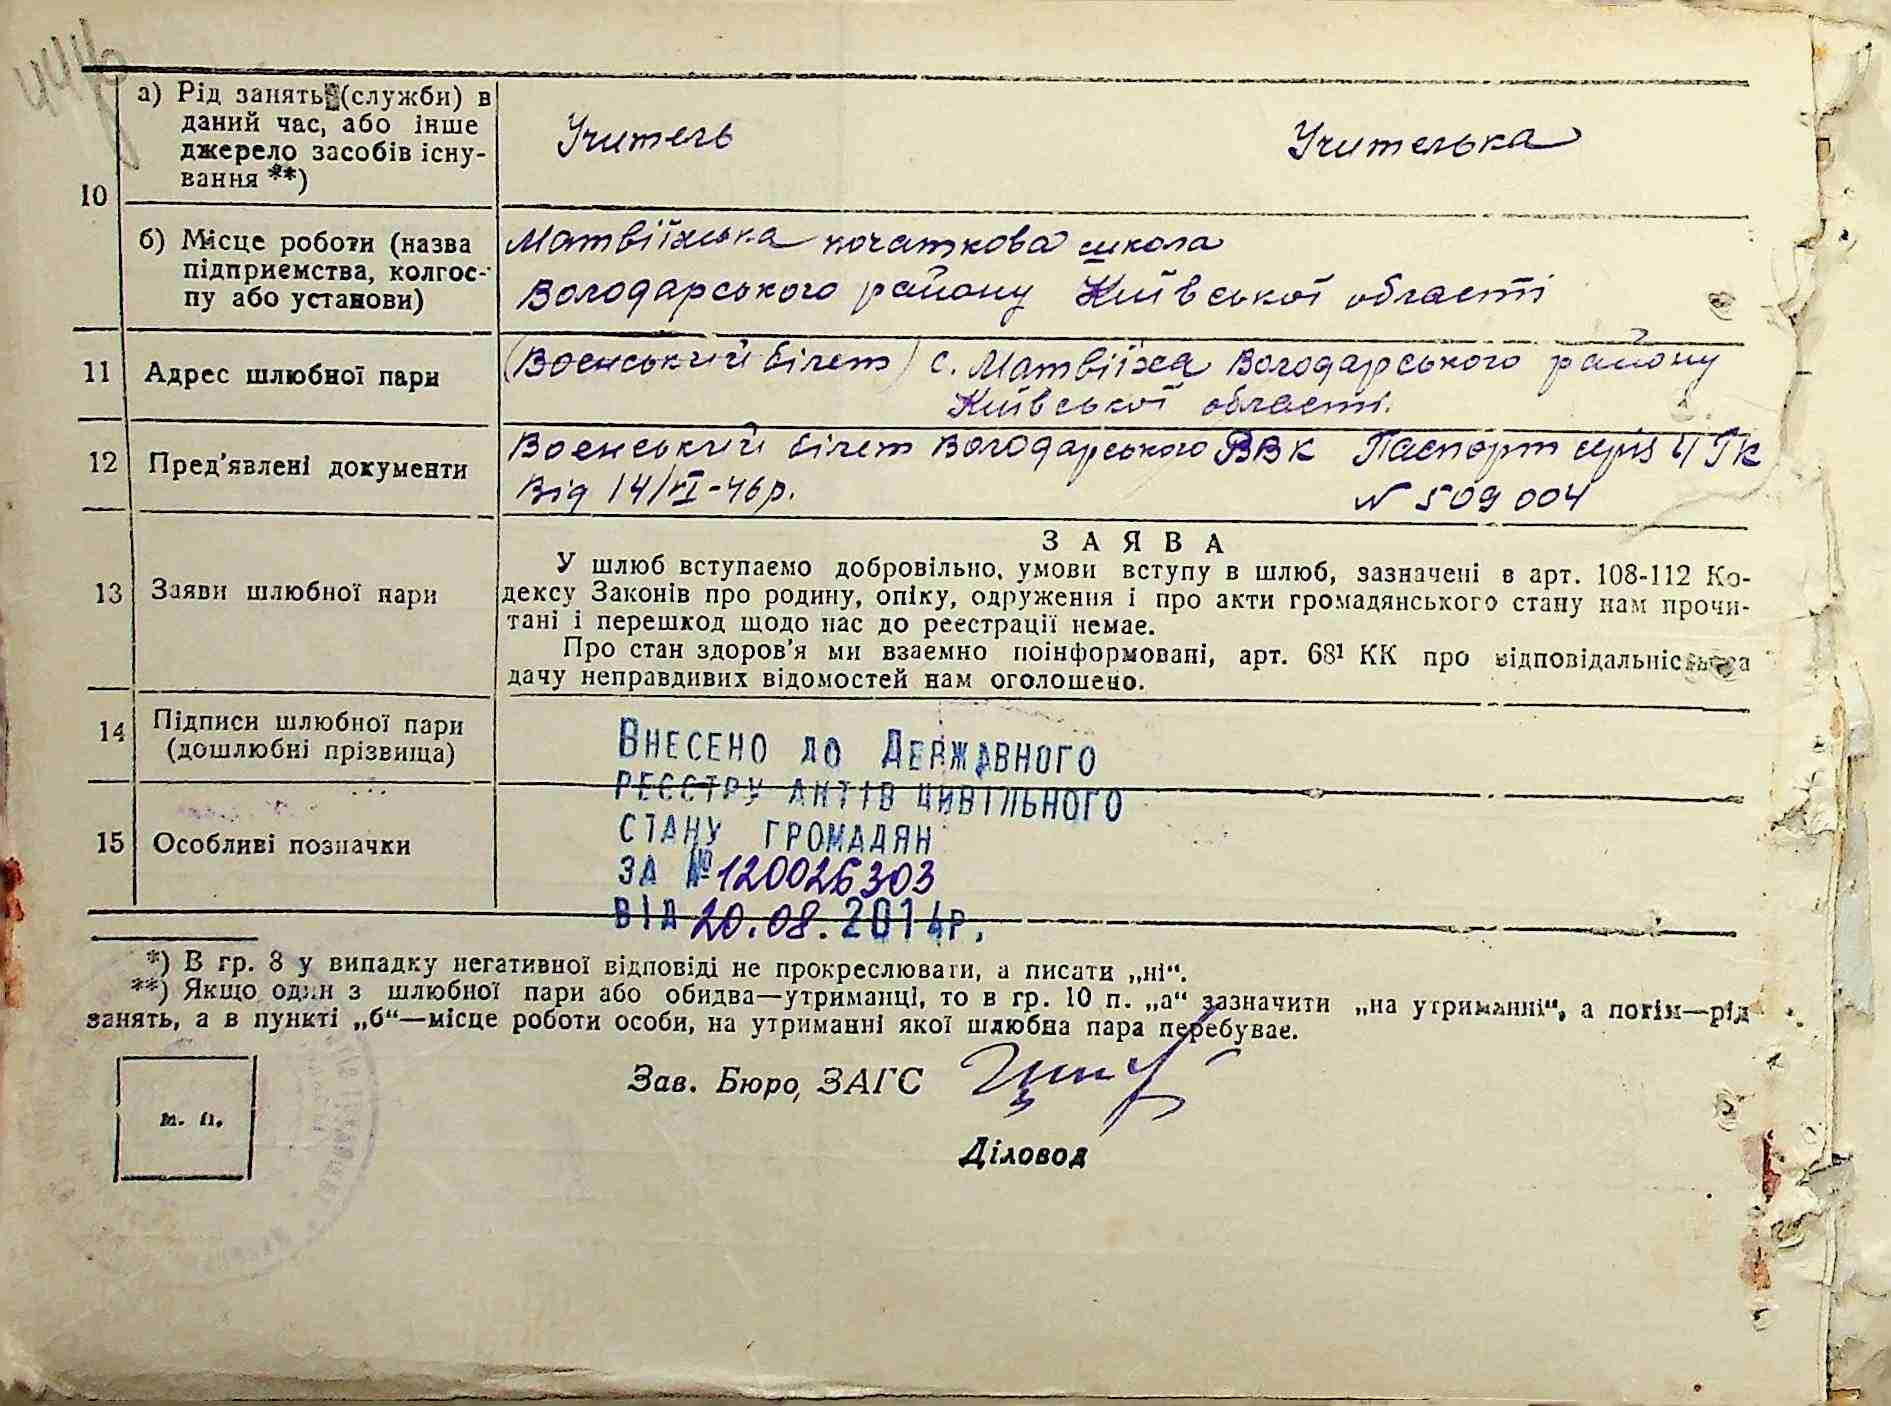 а) Рід занять (служби) в
даний час, або інше
джерело засобів існу-
вання **)
Учитель Учителька
10
б) Місце роботи (назва
підприємства, колгос-
пу або установи)
Матвіїхська початкова школа
Володарського району Київської області
11 Адрес шлюбної пари
(Воєнський білет) с. Матвіїха Володарського району
Київської області.
12 Пред'явлені документи
Воєнський білет Володарського РВК Паспорт серія
Від 14/VI-46р. N 509 004
13 Заяви шлюбної пари
ЗАЯВА
У шлюб вступаємо добровільно, умови вступу в шлюб, зазначені в арт. 108-112 Ко-
дексу Законів про родину, опіку, одруження і про акти громадянського стану нам прочи-
тані і перешкод щодо нас до реєстрації немає.
Про стан здоров'я ми взаємно поінформовані, арт. 68¹ КК про відповідальність за
дачу неправдивих відомостей нам оголошено.
14 Підписи шлюбної пари
(дошлюбні прізвища)
15 Особливі позначки
Внесено до Державного
реєстру актів цивільного
стану громадян
за №120026303
від 20.08.2014р.
*) В гр. 8 у випадку негативної відповіді не прокреслювати, а писати „ні“.
**) Якщо один з шлюбної пари або обидва—утриманці, то в гр. 10 п. „а“ зазначити „на утриманні“, а потім—рід
занять, а в пункті „б“—місце роботи особи, на утриманні якої шлюбна пара перебуває.
Зав. Бюро, ЗАГС
Діловод
м. п.